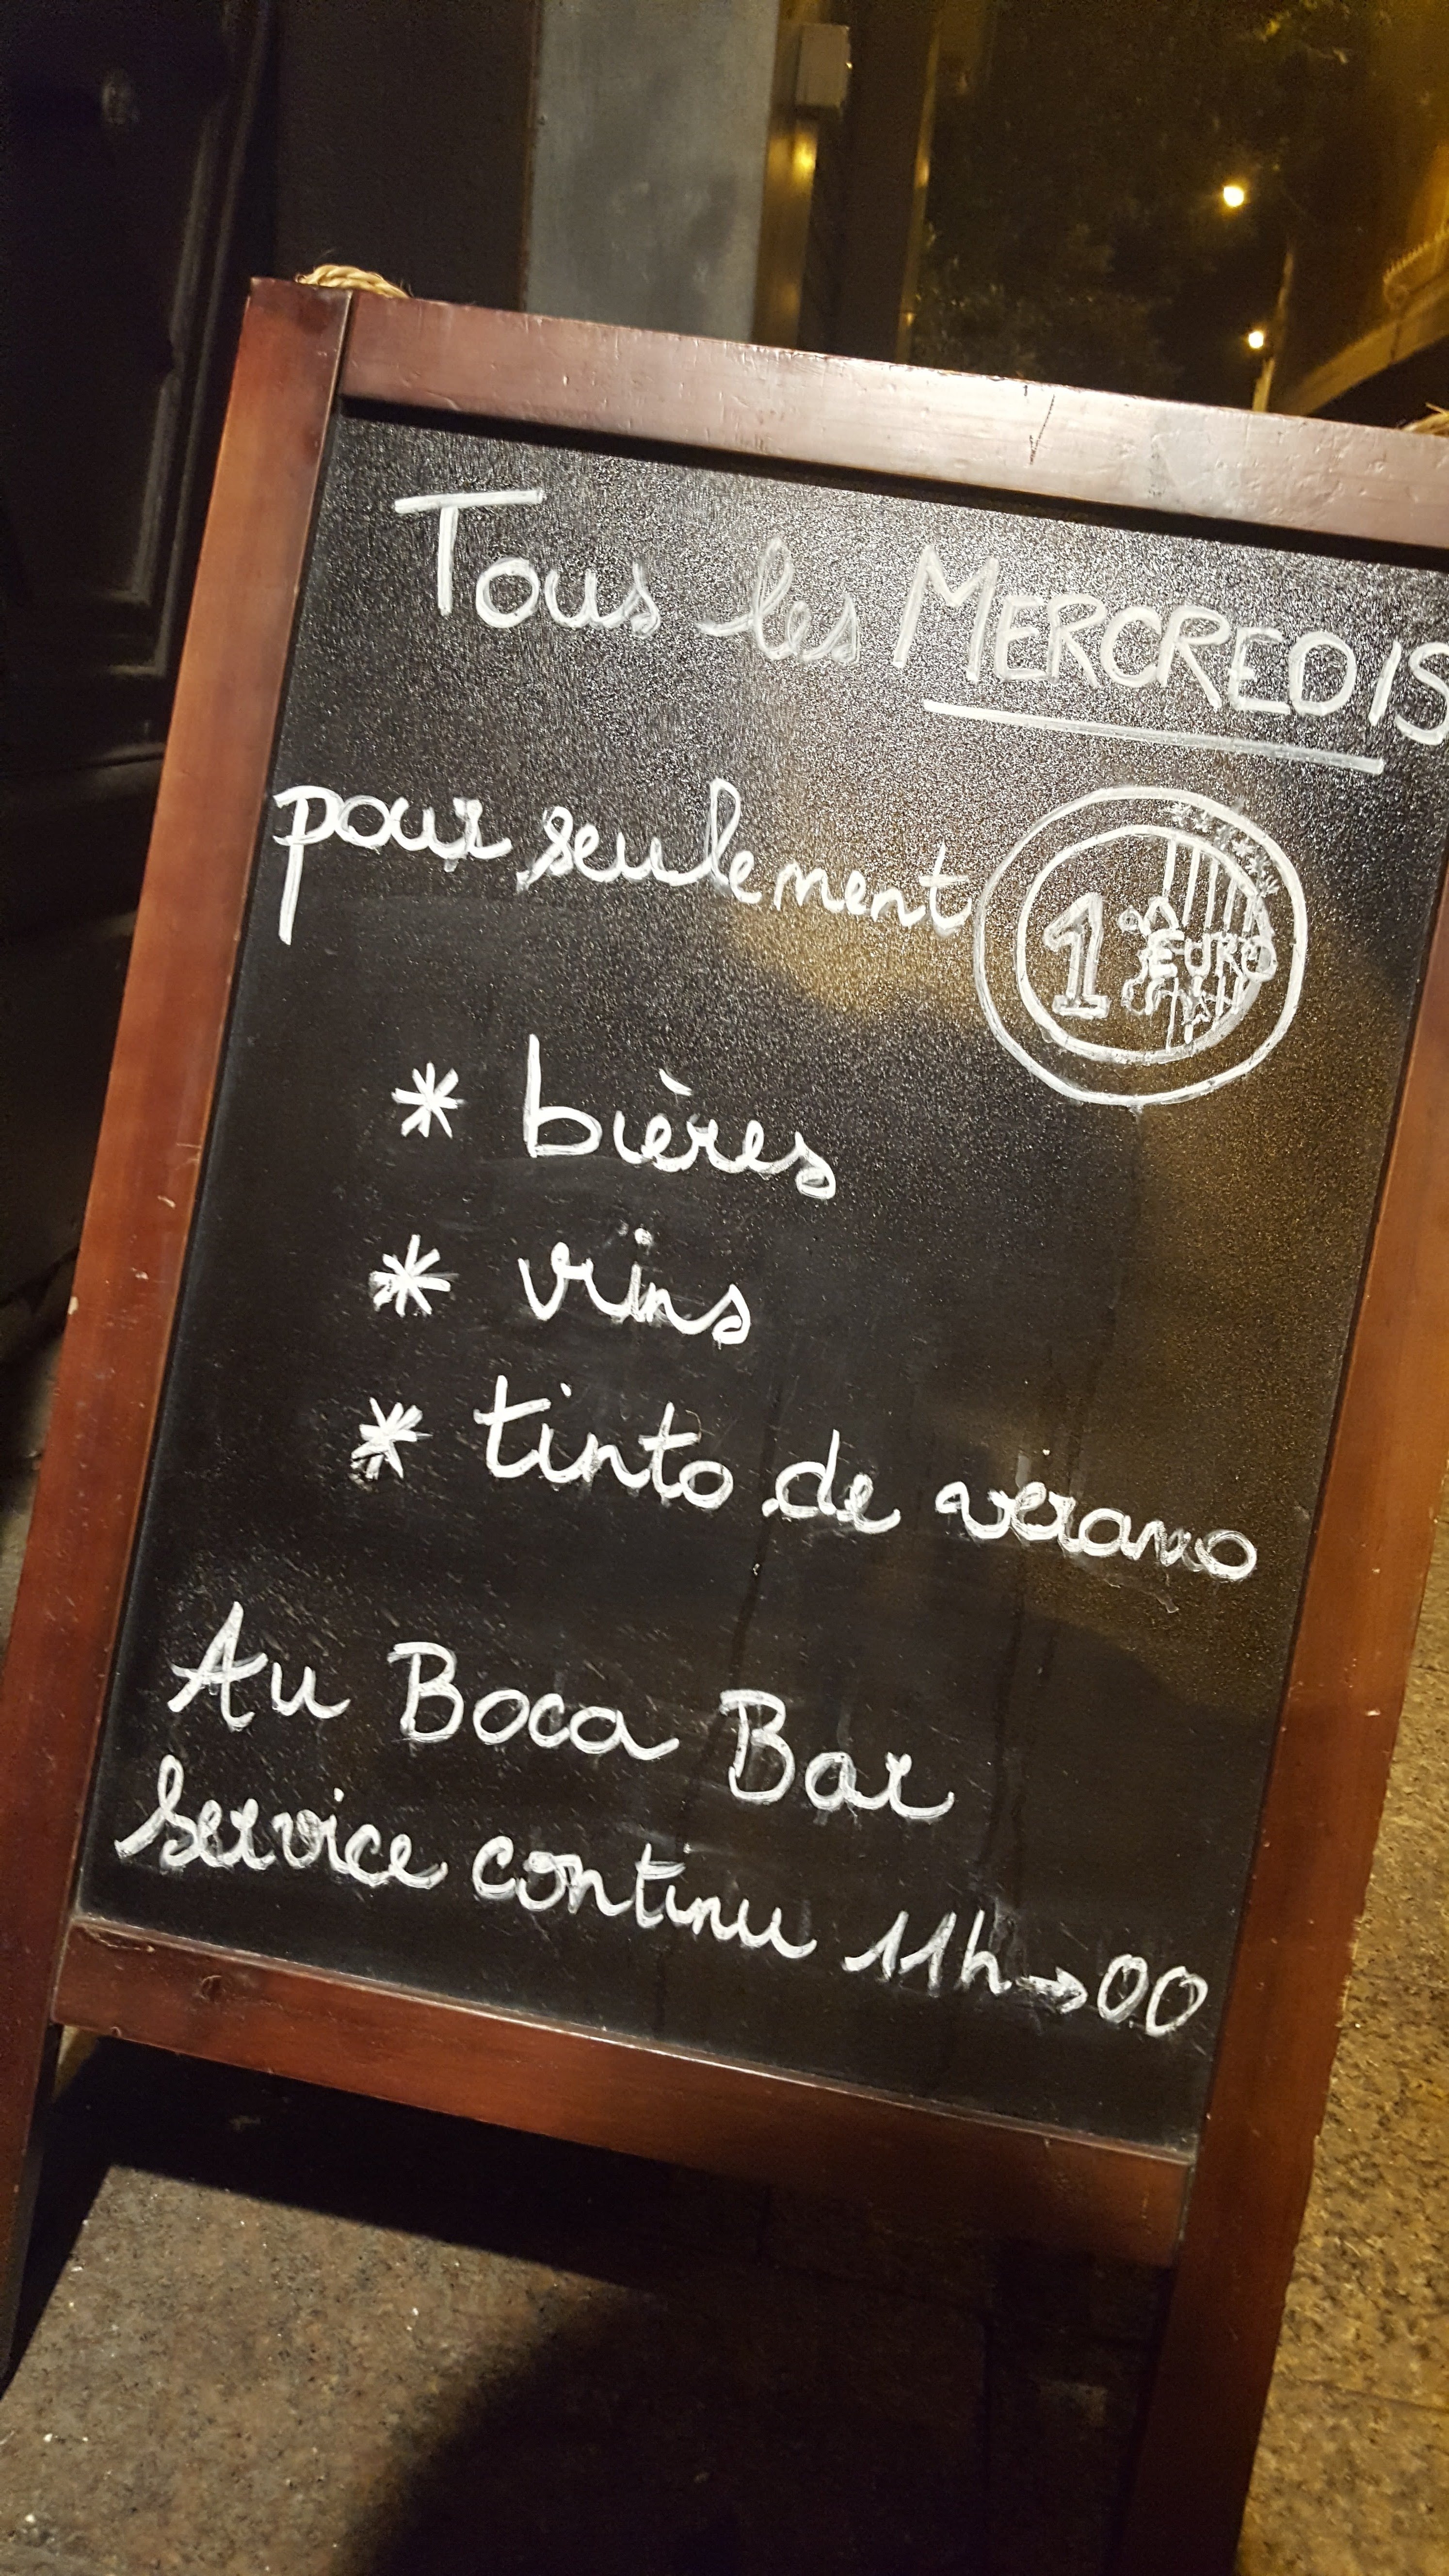 Tous les MERCREDIS
pour seulement 1 EURO
* bières
* vins
* tinto de verano
Au Boca Bar
service continu 11h→00